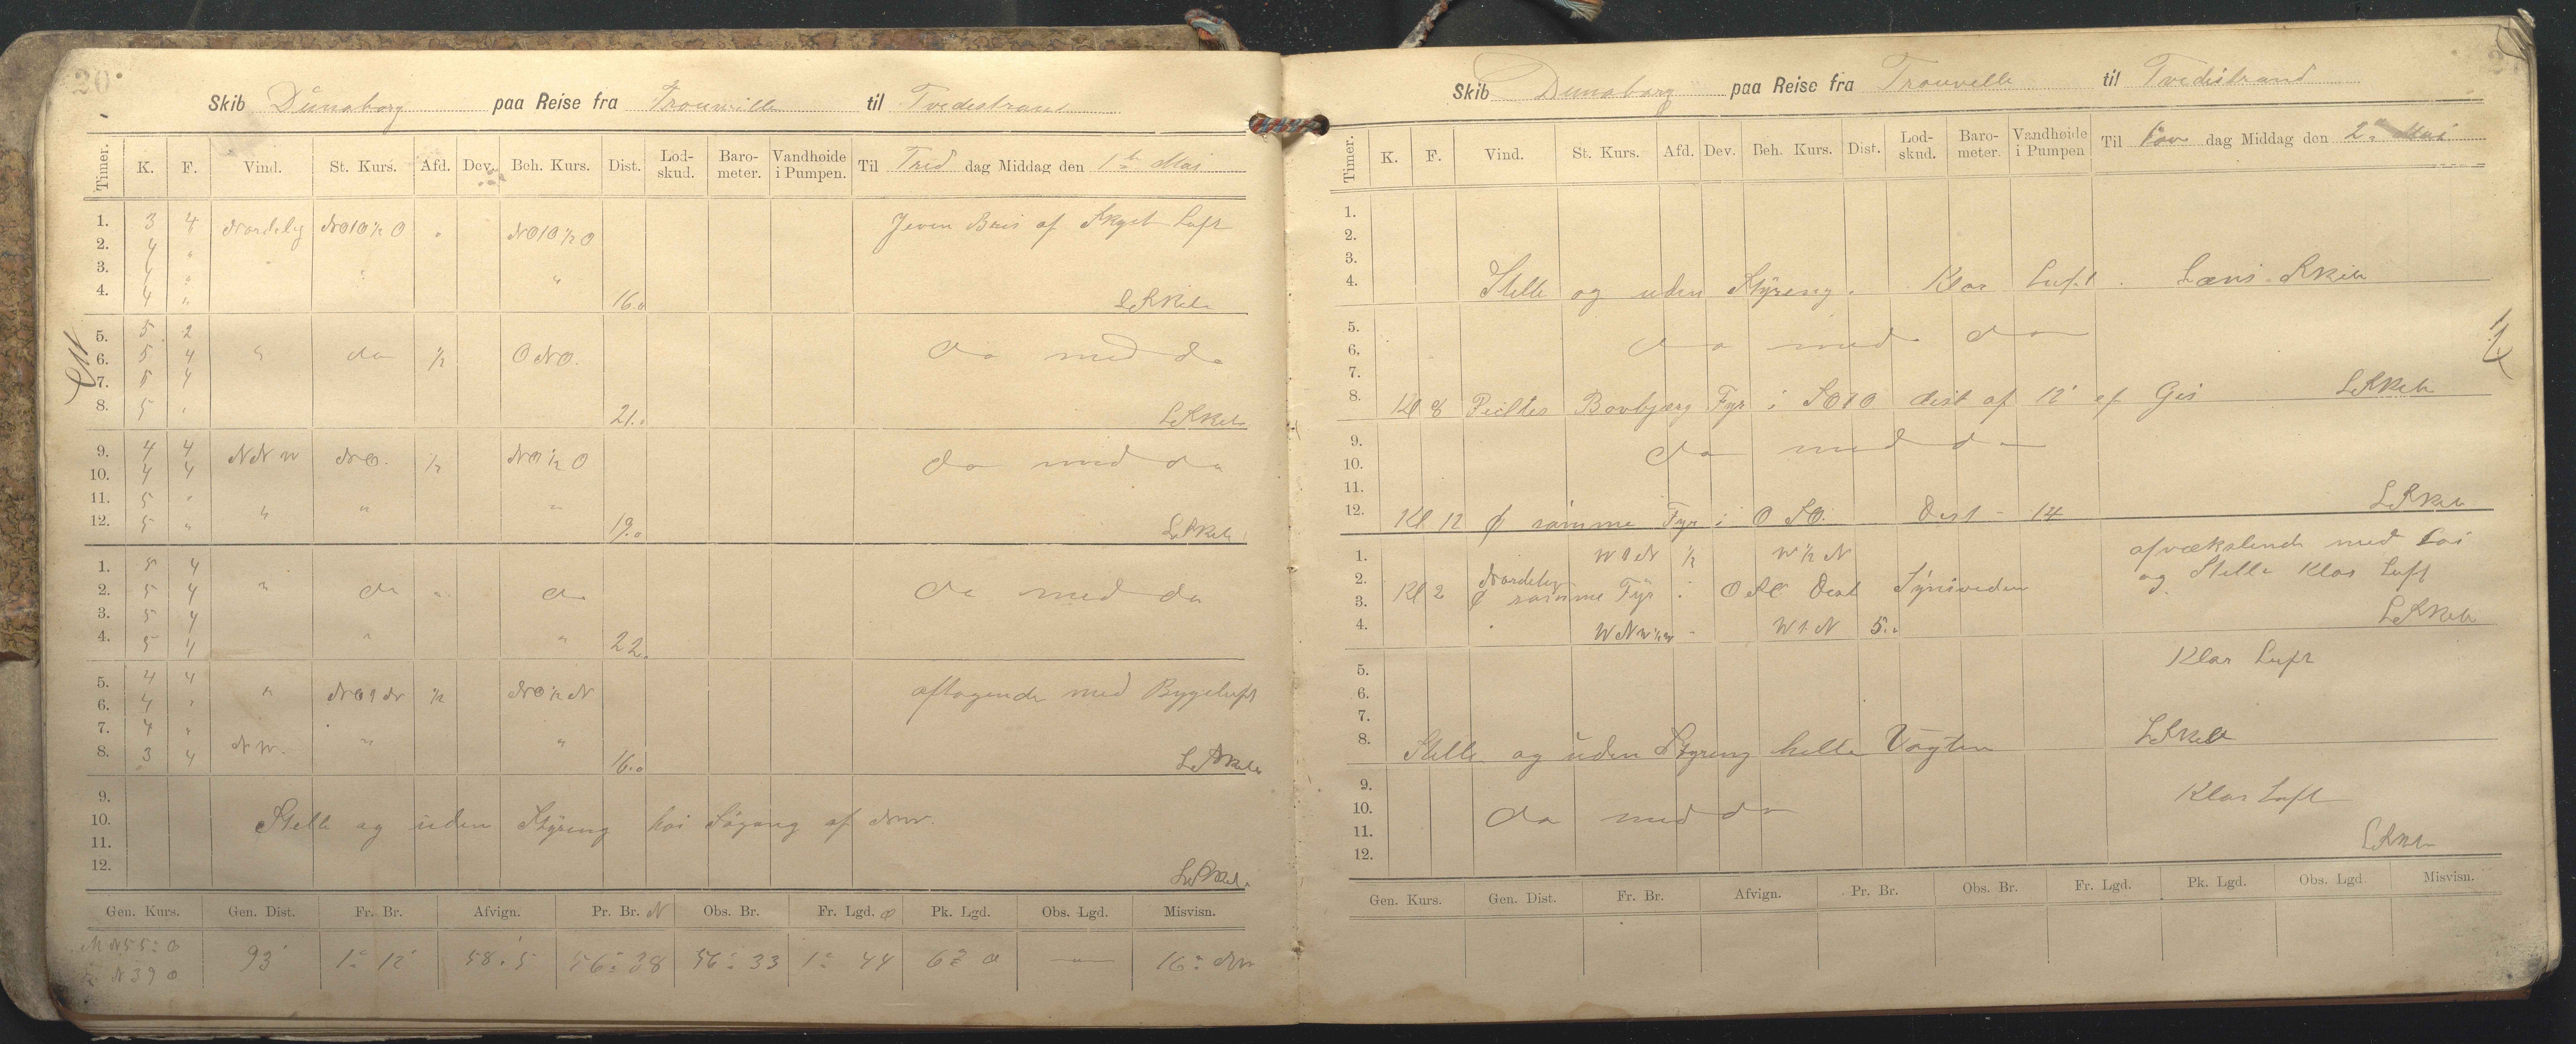 20
Skib Dünaborg paa Reise fra Trouville til Tvedestrand
Timer. K. F. Vind. St. Kurs. Afd. Dev. Beh. Kurs. Dist. Lod-skud. Baro-meter. Vandhøide i Pumpen. Til Tirsd dag Middag den 1ste Mai
1. 3 4 Nordelig NO10½O " NO10½O Jevn Bris af Skyet Luft
2. 4 "
3. 4 " " "
4. 4 " 16.0 L Skib
5. 5 2
6. 5 4 " do ½ ONO. do med do
7. 5 4
8. 5 " 21.0 L Skib
9. 4 4 NNW NO. ½ NO½O do med do
10. 4 4
11. 5 " " " "
12. 5 " 19.0 L Skib
1. 5 4
2. 5 4 " do " do do med do
3. 5 4
4. 5 4 " " 22.
5. 4 4 " NO1N ½ NO½N aftagende med Bygeluft
6. 4 "
7. 4 "
8. 3 4 NW. " " 16.0 L Skib
9.
10. Stille og uden Styring høi Søgang af NW.
11.
12. L Skib.
Gen. Kurs. Gen. Dist. Fr. Br. Afvign. Pr. Br. N Obs. Br. Fr. Lgd. O Pk. Lgd. Obs. Lgd. Misvisn.
N55°O
N39O 93' 1° 12' 58.5 56° 38 56° 33 1° 44 6° O — 16° NW
Skib Dunaborg paa Reise fra Trouville til Tvedestrand
Timer. K. F. Vind. St. Kurs. Afd. Dev. Beh. Kurs. Dist. Lod-skud. Baro-meter. Vandhøide i Pumpen Til dag Middag den 2den Mai
1.
2.
3.
4. Stille og uden Styring. Klar Luft. Læns Skib
5.
6. do med do
7.
8. Kl 8 Peiltes Bovbjærg Fyr i SO10 dist af 12' ef Gis L Skib
9.
10. do med do
11.
12. Kl 12 samme Fyr i OSO. Dist - 14 L Skib
1. W1N ½ W½N afvekslende med
2. Nordelig og Stille Klar Luft
3. Kl 2 samme Fyr i OSO Dist Synsviden
4. " WNW½W - W1N 5.0 L Skib
5. Klar Luft
6.
7.
8. Stille og uden Styring hele Vagten L Skib
9. Klar Luft
10. do med do
11. L Skib
12.
Gen. Kurs. Gen. Dist. Fr. Br. Afvign. Pr. Br. Obs. Br. Fr. Lgd. Pk. Lgd. Obs. Lgd. Misvisn.